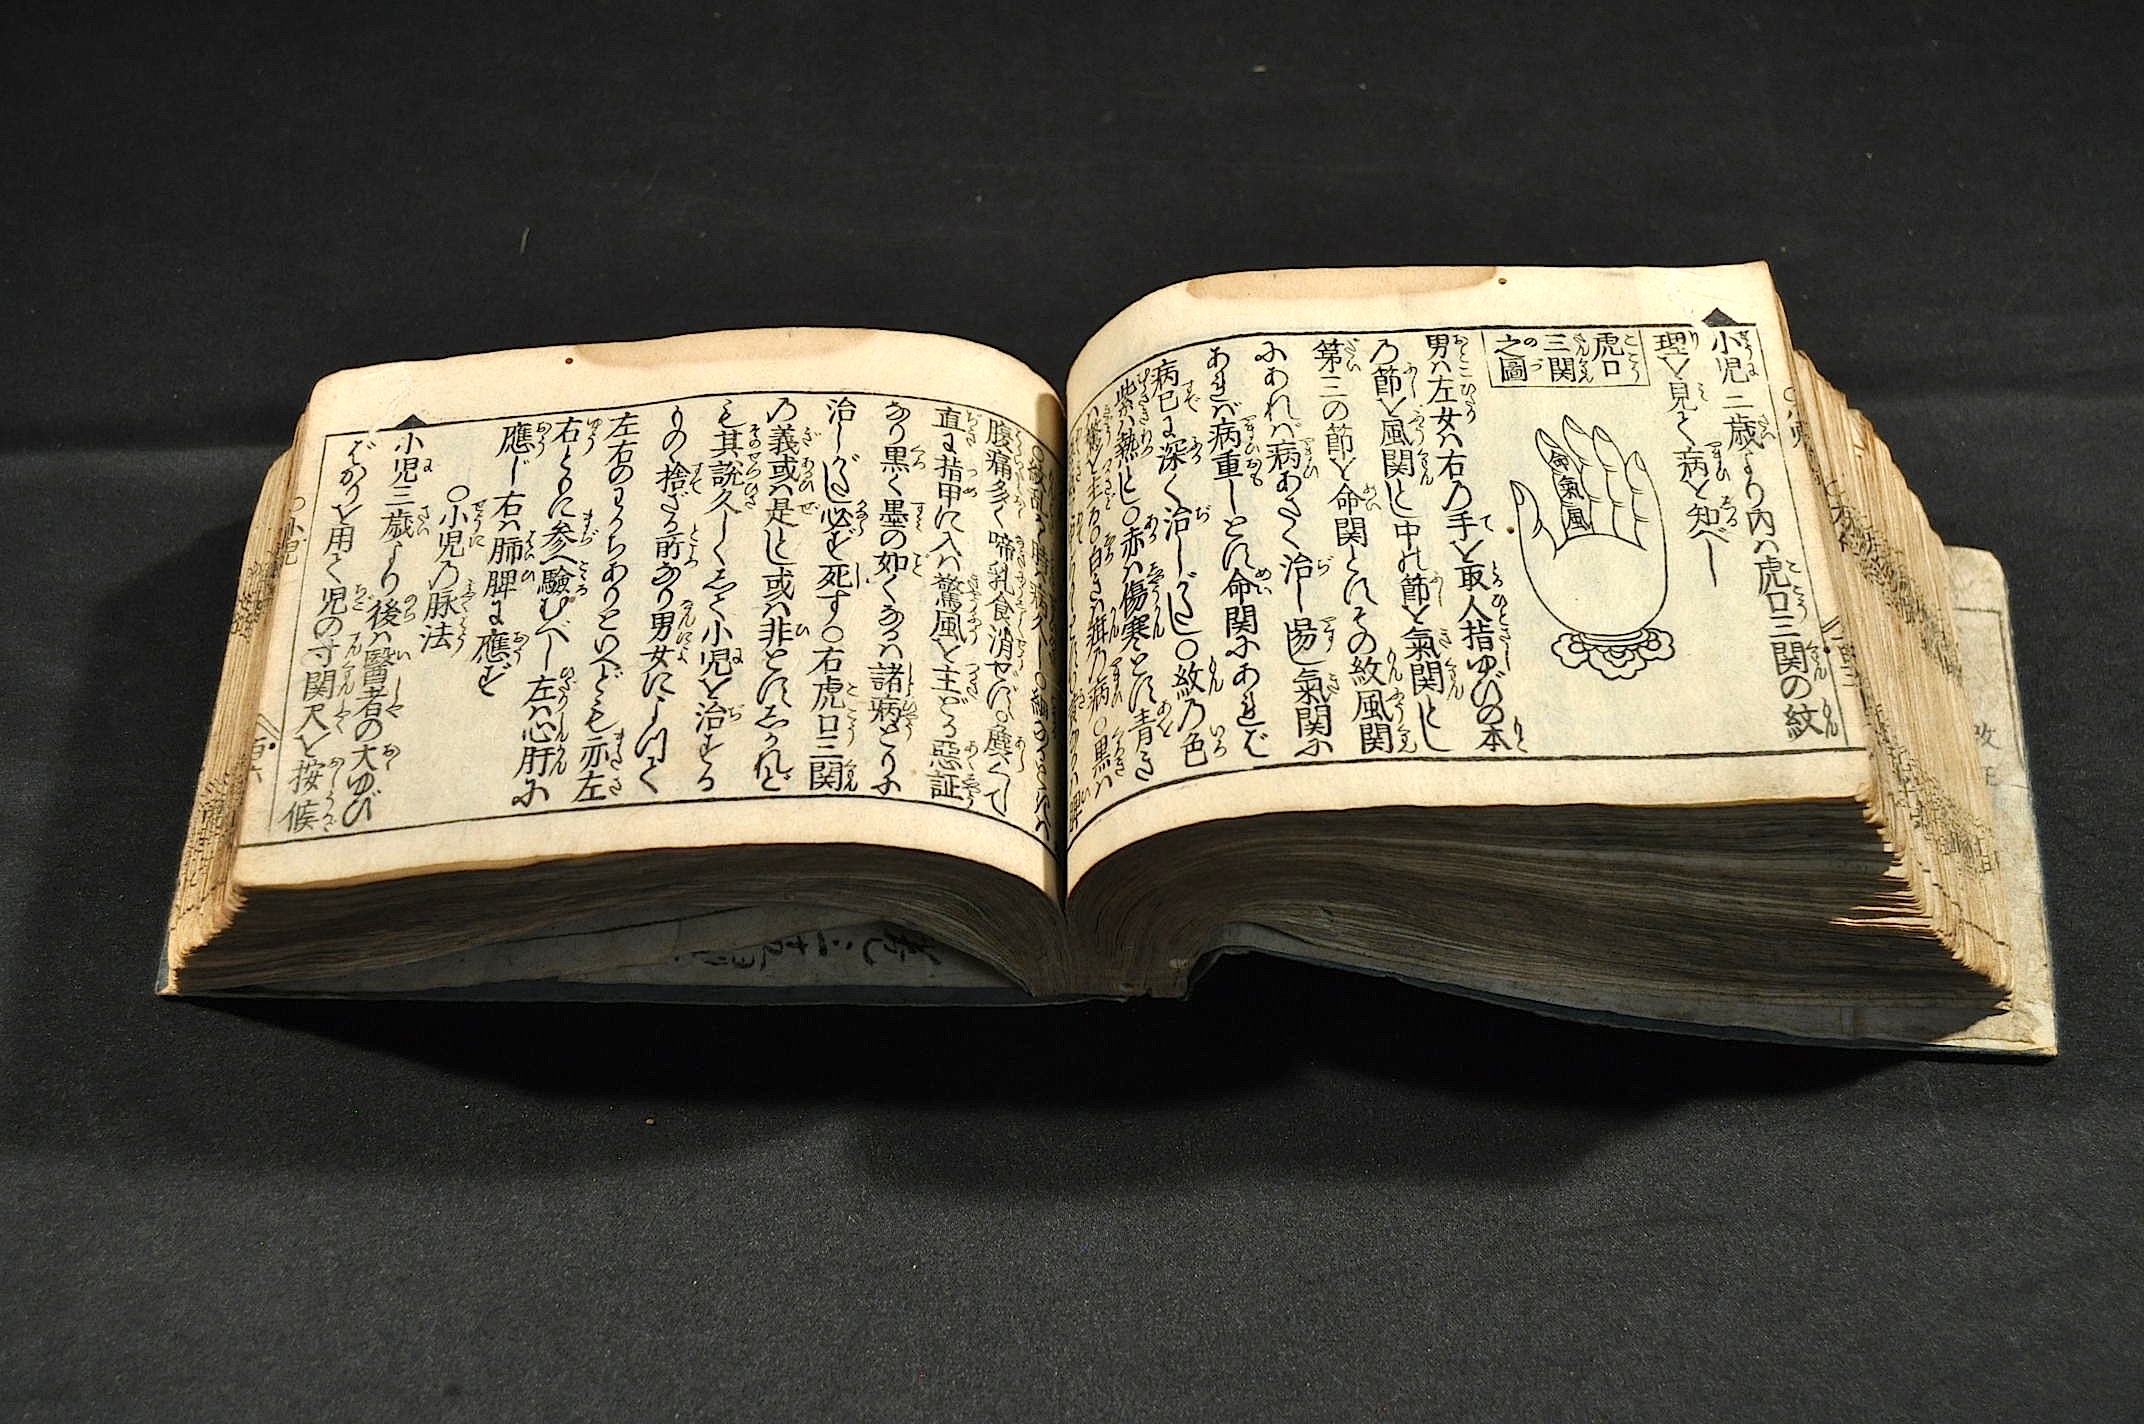 小児三歳より内ハ虎口三関の紋
理を見て病を知べし
虎口
三関
之圖
命
氣
風
男ハ左女ハ右乃手を取人指ゆびの本
乃節を風関とし中の節を氣関とし
第三の節を命関とすその紋風関
にあれハ病あさく治し易し氣関に
あれば病重しとす命関にあれば
病已に深く治しがたし〇紋乃色
紫ハ熱とし〇赤ハ傷寒とす青き
ハ驚を主る〇白きハ疳乃病〇黒ハ
腹痛多く啼乳食消せず〇
直に指甲に入ハ驚風を主どる惡証
なり黒く墨の如くなるハ諸病ともに
治しがたし必ず死す〇右虎口三関
乃義或ハ是とし或ハ非とすしかれど
も其説久しくして小児を治する
もの捨ざる所なり男女によつて
左右のわかちありといへども亦左
右ともに参へ驗むべし左ハ心肝に
應じ右ハ肺脾に應ず
〇小児乃脉法
小児三歳より後ハ醫者の大ゆび
ばかりを用て児の寸関尺を按候